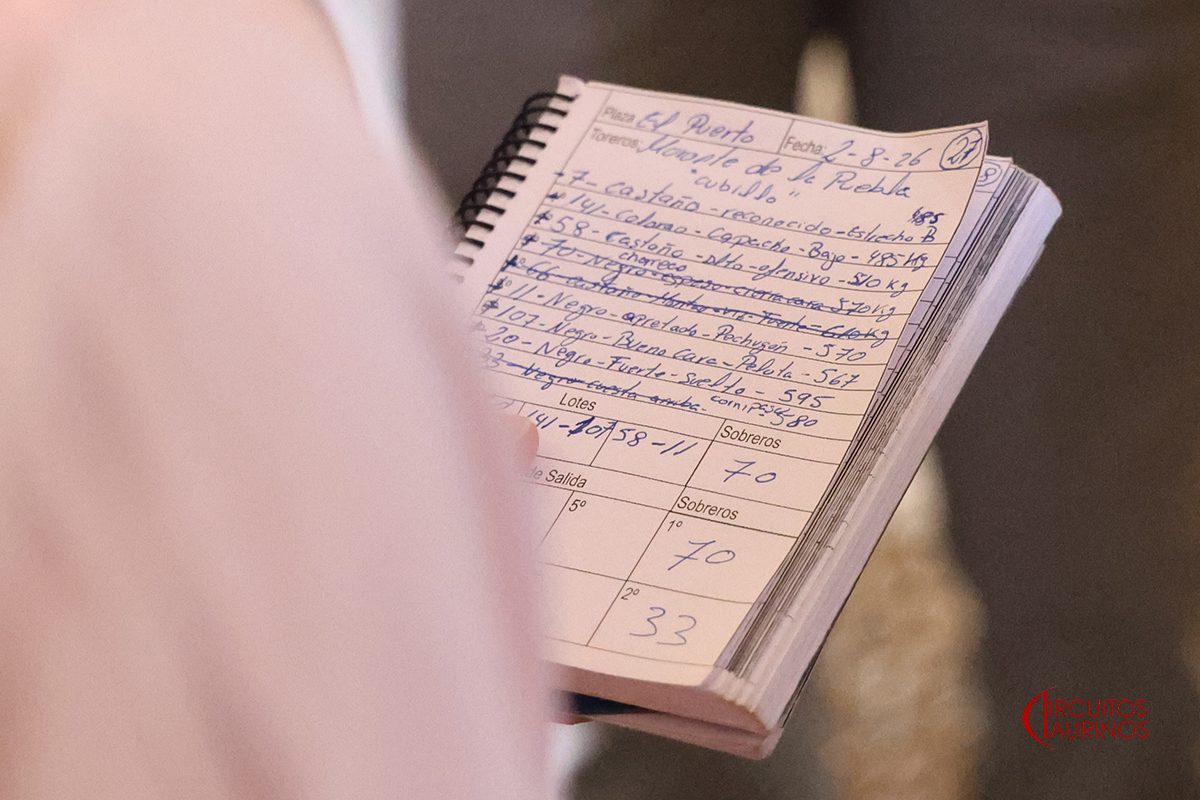 Plaza: El Puerto Fecha: 2-8-26 27
Toreros: Morante de la Puebla
"Cubillo"
7 - castaño - reconocido - Estrecho B 485
141 - Colorao - Capacho - Bajo - 485 Kg
58 - castaño - alto - ofensivo - 510 Kg
chorreao
70 - Negro - espeso - 570 Kg
66 - castaño - Fuerte - 610 Kg
11 - Negro - apretado - Pechugón - 570
107 - Negro - Buena cara - Pelota - 567
20 - Negro - Fuerte - suelto - 595
33 - Negro cuesta arriba. 580
Lotes Sobreros
141-107 58-11 70
de Salida Sobreros
5º 1º 70
2º 33
CIRCUITOS
TAURINOS